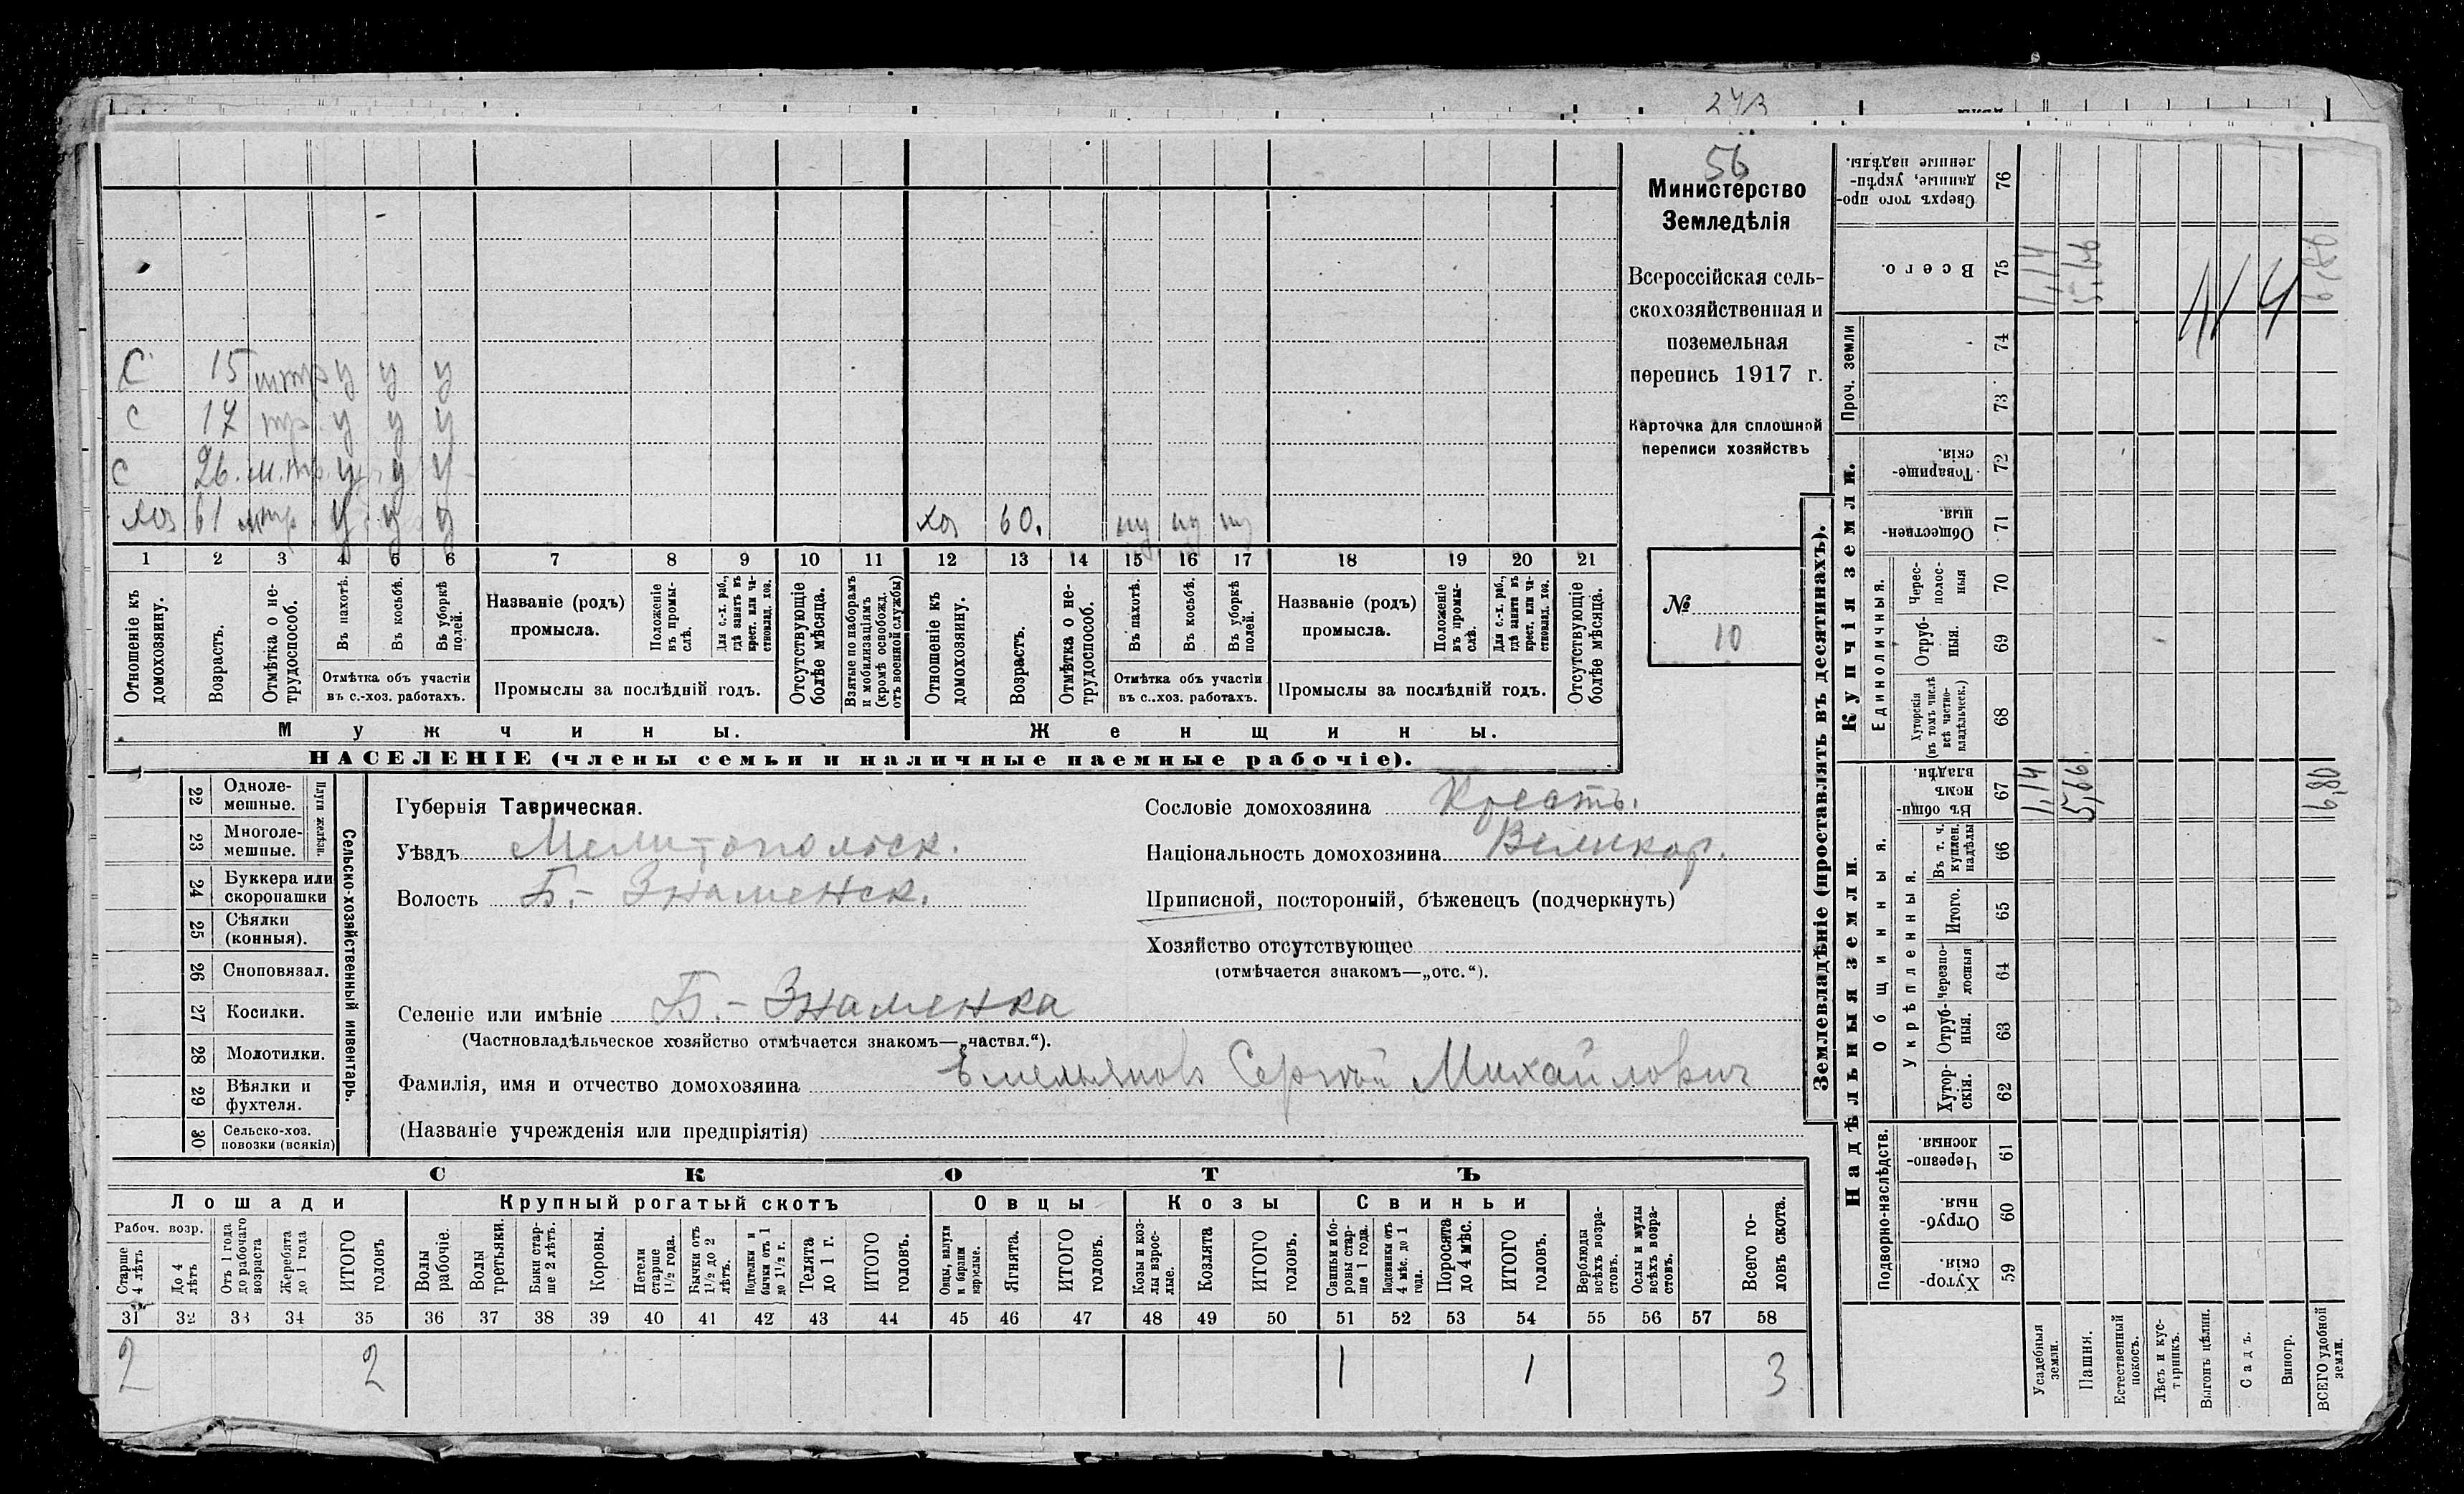 273
56
Министерство
Земледѣлія
Всероссійская сель-
скохозяйственная и
поземельная
перепись 1917 г.
Карточка для сплошной
переписи хозяйствъ
№
10
С 15 нтр у у у
С 17 тр. у у у
С 26. н.тр. у у у
хоз 61 нтр. у у у хоз 60. ну ну ну
1 2 3 4 5 6 7 8 9 10 11 12 13 14 15 16 17 18 19 20 21
Отношеніе къ домохозяину.
Возрастъ.
Отмѣтка о не-трудоспособ.
Въ пахотѣ.
Въ косьбѣ.
Въ уборкѣ полей.
Отмѣтка объ участіи
въ с.-хоз. работахъ.
Названіе (родъ)
промысла.
Положеніе въ промы-слѣ.
Для с.-х. раб., гдѣ занятъ въ крест. или ча-стновлад. хоз.
Промыслы за послѣдній годъ.
Отсутствующіе болѣе мѣсяца.
Взятые по наборамъ и мобилизаціямъ (кромѣ освобожд. отъ военной службы)
Отношеніе къ домохозяину.
Возрастъ.
Отмѣтка о не-трудоспособ.
Въ пахотѣ.
Въ косьбѣ.
Въ уборкѣ полей.
Отмѣтка объ участіи
въ с.-хоз. работахъ.
Названіе (родъ)
промысла.
Положеніе въ промы-слѣ.
Для с.-х. раб., гдѣ занята въ крест. или ча-стновлад. хоз.
Промыслы за послѣдній годъ.
Отсутствующіе болѣе мѣсяца.
Мужчины. Женщины.
НАСЕЛЕНІЕ (члены семьи и наличные наемные рабочіе).
22 Одноле-мешные.
23 Многоле-мешные.
Плуги желѣзн.
24 Буккера или скоропашки
25 Сѣялки (конныя).
26 Сноповязал.
27 Косилки.
28 Молотилки.
29 Вѣялки и фухтеля.
30 Сельско-хоз. повозки (всякія)
Сельско-хозяйственный инвентарь.
Губернія Таврическая.
Уѣздъ Мелитопольск.
Волость Б.-Знаменск.
Сословіе домохозяина Крестъ.
Національность домохозяина Великор.
Приписной, посторонній, бѣженецъ (подчеркнуть)
Хозяйство отсутствующее
(отмѣчается знакомъ—„отс.“).
Селеніе или имѣніе Б.-Знаменка
(Частновладѣльческое хозяйство отмѣчается знакомъ—„частвл.“).
Фамилія, имя и отчество домохозяина Емельяновъ Сергѣй Михайловичъ
(Названіе учрежденія или предпріятія)
СКОТЪ
Лошади Крупный рогатый скотъ Овцы Козы Свиньи
Рабоч. возр.
Старше 4 лѣтъ
До 4 лѣтъ
Отъ 1 года до рабочаго возраста
Жеребята до 1 года
ИТОГО головъ
Волы рабочіе.
Волы третьяки.
Быки стар-ше 2 лѣтъ.
Коровы.
Петели старше 1 1/2 года.
Бычки отъ 1 1/2 до 2 лѣтъ.
Подтелки и бычки отъ 1 до 1 1/2 г.
Телята до 1 г.
ИТОГО головъ.
Овцы, валухи и бараны взрослые.
Ягнята.
ИТОГО головъ.
Козы и коз-лы взрос-лые.
Козлята
ИТОГО головъ.
Свиньи и бо-ровы стар-ше 1 года.
Подсвинки отъ 4 мѣс. до 1 года.
Поросята до 4 мѣс.
ИТОГО головъ.
Верблюды всѣхъ возра-стовъ.
Ослы и мулы всѣхъ возра-стовъ.
Всего го-ловъ скота.
31 32 33 34 35 36 37 38 39 40 41 42 43 44 45 46 47 48 49 50 51 52 53 54 55 56 57 58
2 2 1 1 3
Землевладѣніе (проставлять въ десятинахъ).
Сверхъ того про-данные, укрѣп-ленные надѣлы. 76
Всего. 75 1,14 5,66 6,80
Проч. земли
74
73
Купчія земли.
Товарище-скія. 72
Обществен-ныя. 71
Единоличныя.
Черес-полос-ныя 70
Отруб-ныя. 69
Хуторскія (въ томъ числѣ всѣ частно-владѣльческ.) 68
Надѣльныя земли.
Общинныя.
Въ общин-номъ владѣн. 67 1,14 5,66 6,80
Укрѣпленныя.
Въ т. ч. куплен. надѣлы 66
Итого. 65
Черезпо-лосныя 64
Отруб-ныя. 63
Хутор-скія. 62
Подворно-наслѣдств.
Черезпо-лосныя. 61
Отруб-ныя. 60
Хутор-скія. 59
Усадебныя земли.
Пашня.
Естественный покосъ.
Лѣсъ и кус-тарникъ.
Выгонъ цѣлин.
Садъ.
Виногр.
ВСЕГО удобной земли.